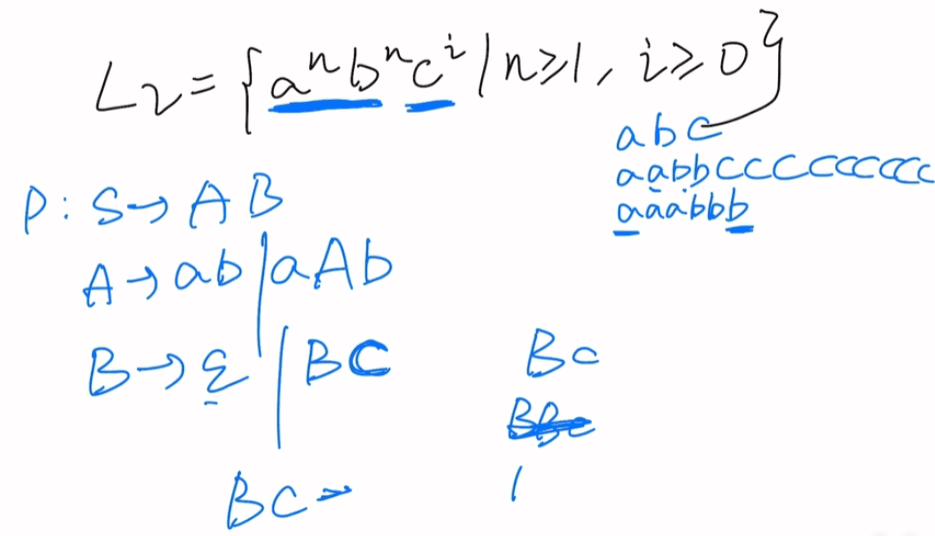 L₂={aⁿbⁿcⁱ|n≥1, i≥0}
abc
aabbccccccccc
aaabbb
P: S→AB
A→ab|aAb
B→ε|Bc
Bc
BBc
Bc→